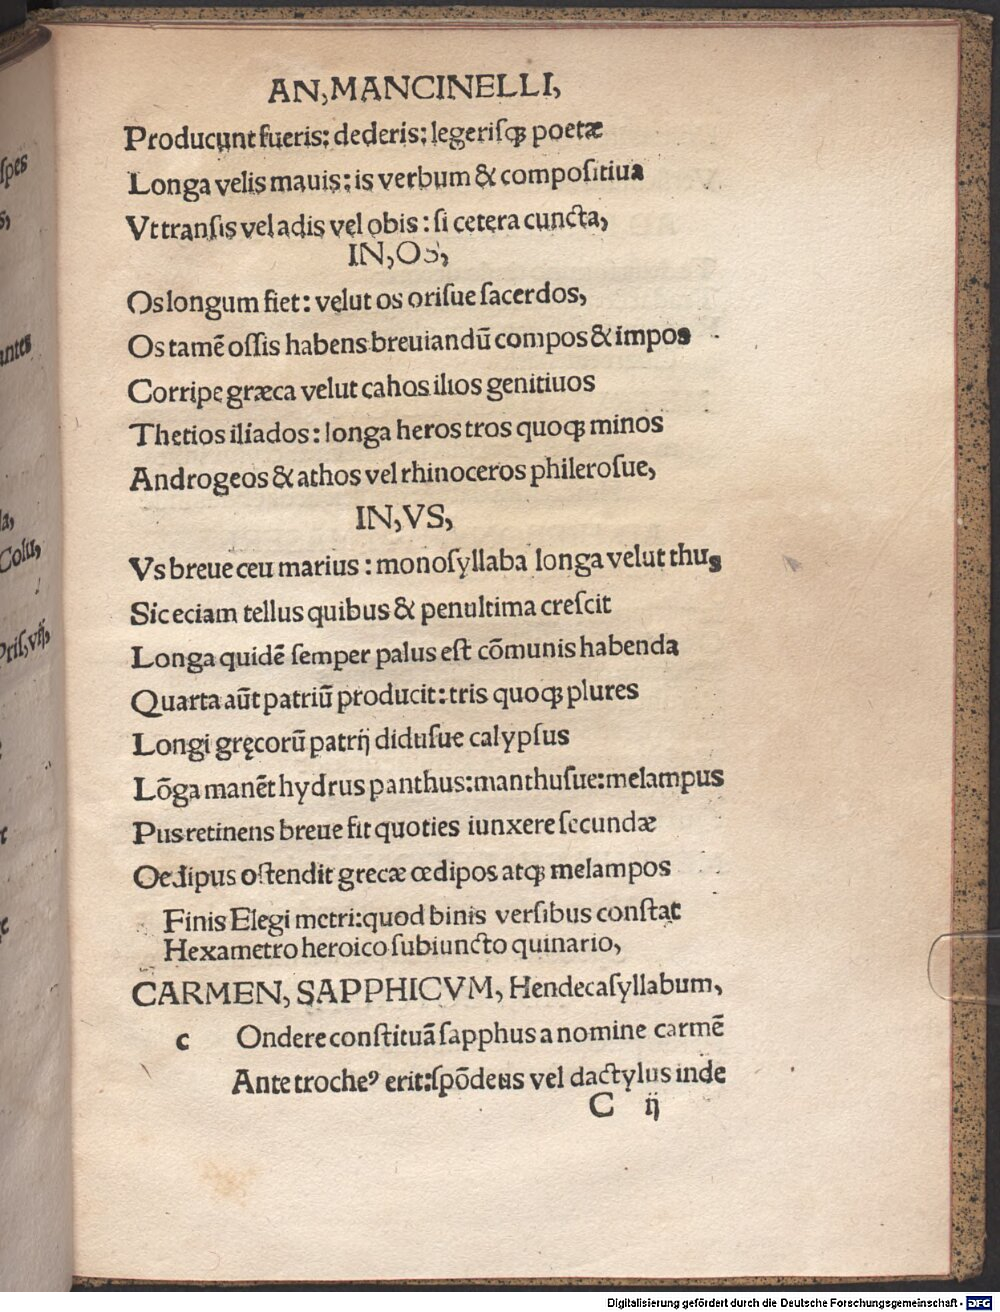 AN,MANCINELLI,
Producunt fueris: dederis: legerisqꝫ poetæ
Longa velis mauis: is verbum & compositiua
Vt transis vel adis vel obis: si cetera cuncta,
IN,OS,
Os longum fiet: velut os orisue sacerdos,
Os tamē ossis habens breuiandū compos & impos
Corripe græca velut cahos ilios genitiuos
Thetios iliados: longa heros tros quoqꝫ minos
Androgeos & athos vel rhinoceros philerosue,
IN,VS,
Vs breue ceu marius: monosyllaba longa velut thus
Sic eciam tellus quibus & penultima crescit
Longa quidē semper palus est cōmunis habenda
Quarta aūt patriū producit: tris quoqꝫ plures
Longi gręcorū patrij didusue calypsus
Lōga manēt hydrus panthus: manthusue: melampus
Pus retinens breue fit quoties iunxere secundæ
Oedipus ostendit grecæ œdipos atqꝫ melampos
Finis Elegi metri: quod binis versibus constat
Hexametro heroico subiuncto quinario,
CARMEN, SAPPHICVM, Hendecasyllabum,
c Ondere constituā sapphus a nomine carmē
Ante troche⁹ erit: spōdeus vel dactylus inde
C ij
spes
s,
antes
la,
Colu,
Pris,vtī,
Digitalisierung gefördert durch die Deutsche Forschungsgemeinschaft - DFG